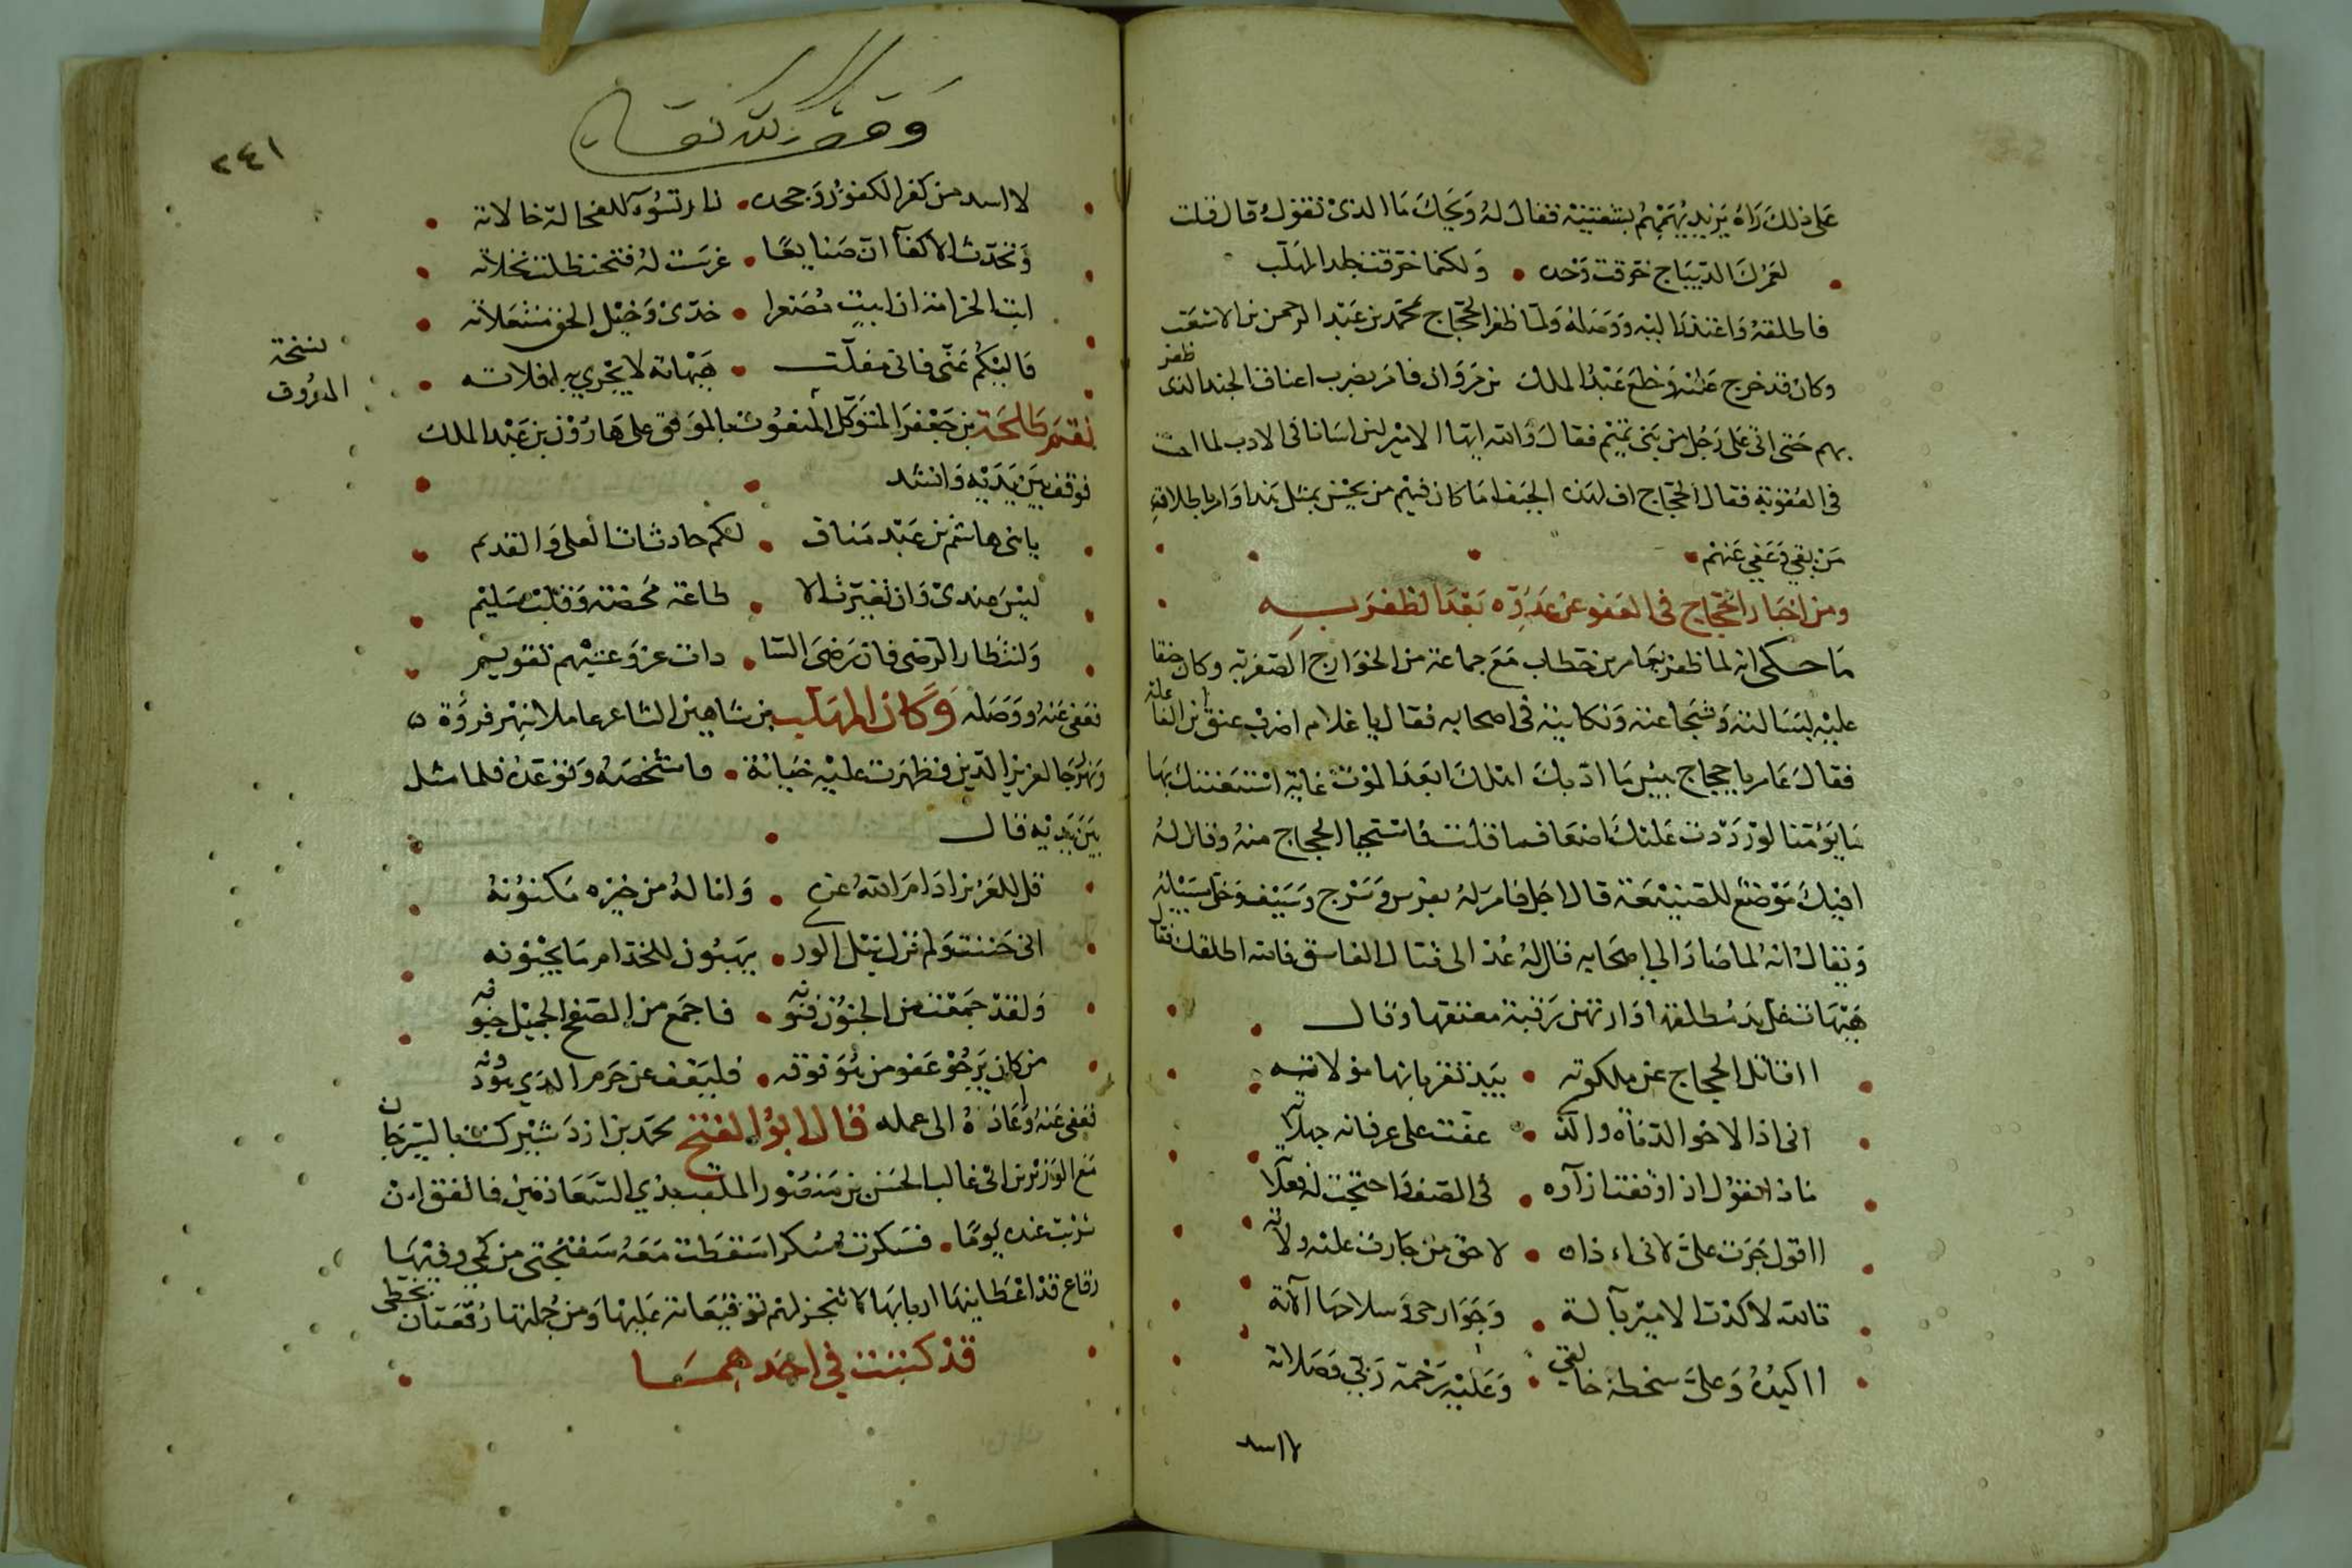 على ذلك رآه يزيد يهمهم بشفتيه فقال له ويحك ما الذي تقول قال قلت
لعمرك الديباج خرقت وحده • ولكنما خرقت جلد المهلب
فاطلقه واعتذر اليه ووصله ولما ظفر الحجاج بمحمد بن عبد الرحمن بن الاشعث
وكان قد خرج عليه وخلع عبد الملك بن مروان فامر بضرب اعناق الجند الذي ظفر
بهم حتى اتى على رجل من بني تميم فقال والله ايها الامير لئن اسانا في الادب لما احسنت
في العقوبة فقال الحجاج اف لهذه الجيف اما كان فيهم من يحسن بمثل هذا وامر باطلاق
من بقي وعفي عنهم
ومن اخبار الحجاج في العفو عن عدوه بعد الظفر به
ما حكى انه لما ظفر بعامر بن حطاب مع جماعة من الخوارج الصفرية وكان حنقا
عليه لبسالته وشجاعته ونكايته في اصحابه فقال يا غلام اضرب عنق ابن الفاعلة
فقال عامر يا حجاج بئس ما ادبك اهلك ابعد الموت غاية استبقيتك بها
ما يؤمننا لو رددت عليك اضعاف ما قلت فاستحيا الحجاج منه وقال له
افيك موضع للصنيعة قال اجل فامر له بفرس وسرج وسيف وخلى سبيله
ويقال انه لما صار الى اصحابه قال له عد الى قتال الفاسق فالله اطلقك فقال
هيهات غل يد مطلقها وارتهن رقبة معتقها وقال
ااقاتل الحجاج عن ملكوته • بيد تقر بانها مولاته
اني اذا لاخو الدناة والذي • عفت على عرفانه جهلاته
ماذا اقول اذا وقفت ازاه • في الصف واحتجت له فعلاته
ااقول جرت علي لا اني اذا • لاحق من جارت عليه ولاته
تالله لا كدت الامير بآلة • وجوارحي وسلاحها آلاته
ااكيده وعلي سخطة خالقي • وعليه رحمة ربي وصلاته
لا اسد
٢٤١
لا اسد من كفر الكفور وجحده • نار تسوء للفحالة خالاته
وتحدث الاكفا ان صنايعا • غرست له فتحنظلت نخلاته
نسخة
المعروف
نقم طلحة بن جعفر المتوكل المنعوت بالموفق على هارون بن عبد الملك
فوقف بين يديه وانشد
يا بني هاشم بن عبد مناف • لكم حادثات العلى والقديم
ليس عندي وان تغيرت الا • طاعة محضة وقلب سليم
وانتظار الرضى فان رضى السا • دات عز وعتبهم تقويم
فعفى عنه ووصله وكان المهلب بن شاهين الشاعر عاملا بنهر فروة
ونهرجا لعزيز الدين فظهرت عليه خيانة • فاستخصه وتوعده فلما مثل
بين يديه قال
قل للعزيز ادام الله عزه • وانا له من خيره مكنونه
اني جننت ولم تزل نبل الورى • يهبون للخدام ما يجنونه
ولقد جمعت من الجنون فنونه • فاجمع من الصفح الجميل فنونه
من كان يرجو عفو من هو فوقه • فليعف عن جرم الذي هو دونه
فعفى عنه واعاده الى عمله قال ابو الفتح محمد بن ازدشير كنت بالسيرجان
مع الوزير بن ابي غالب الحسن بن منصور الملقب بذي السعادتين فاتفق ان
شربت عنده يوما • فسكرت سكرا سقطت معه سفتجتي من كمي وفيها
رقاع قد اعطانيها اربابها لاتنجز لهم توقيعاته عليها ومن جملتها رقعتان بخطي
قد كتبت في احدهما